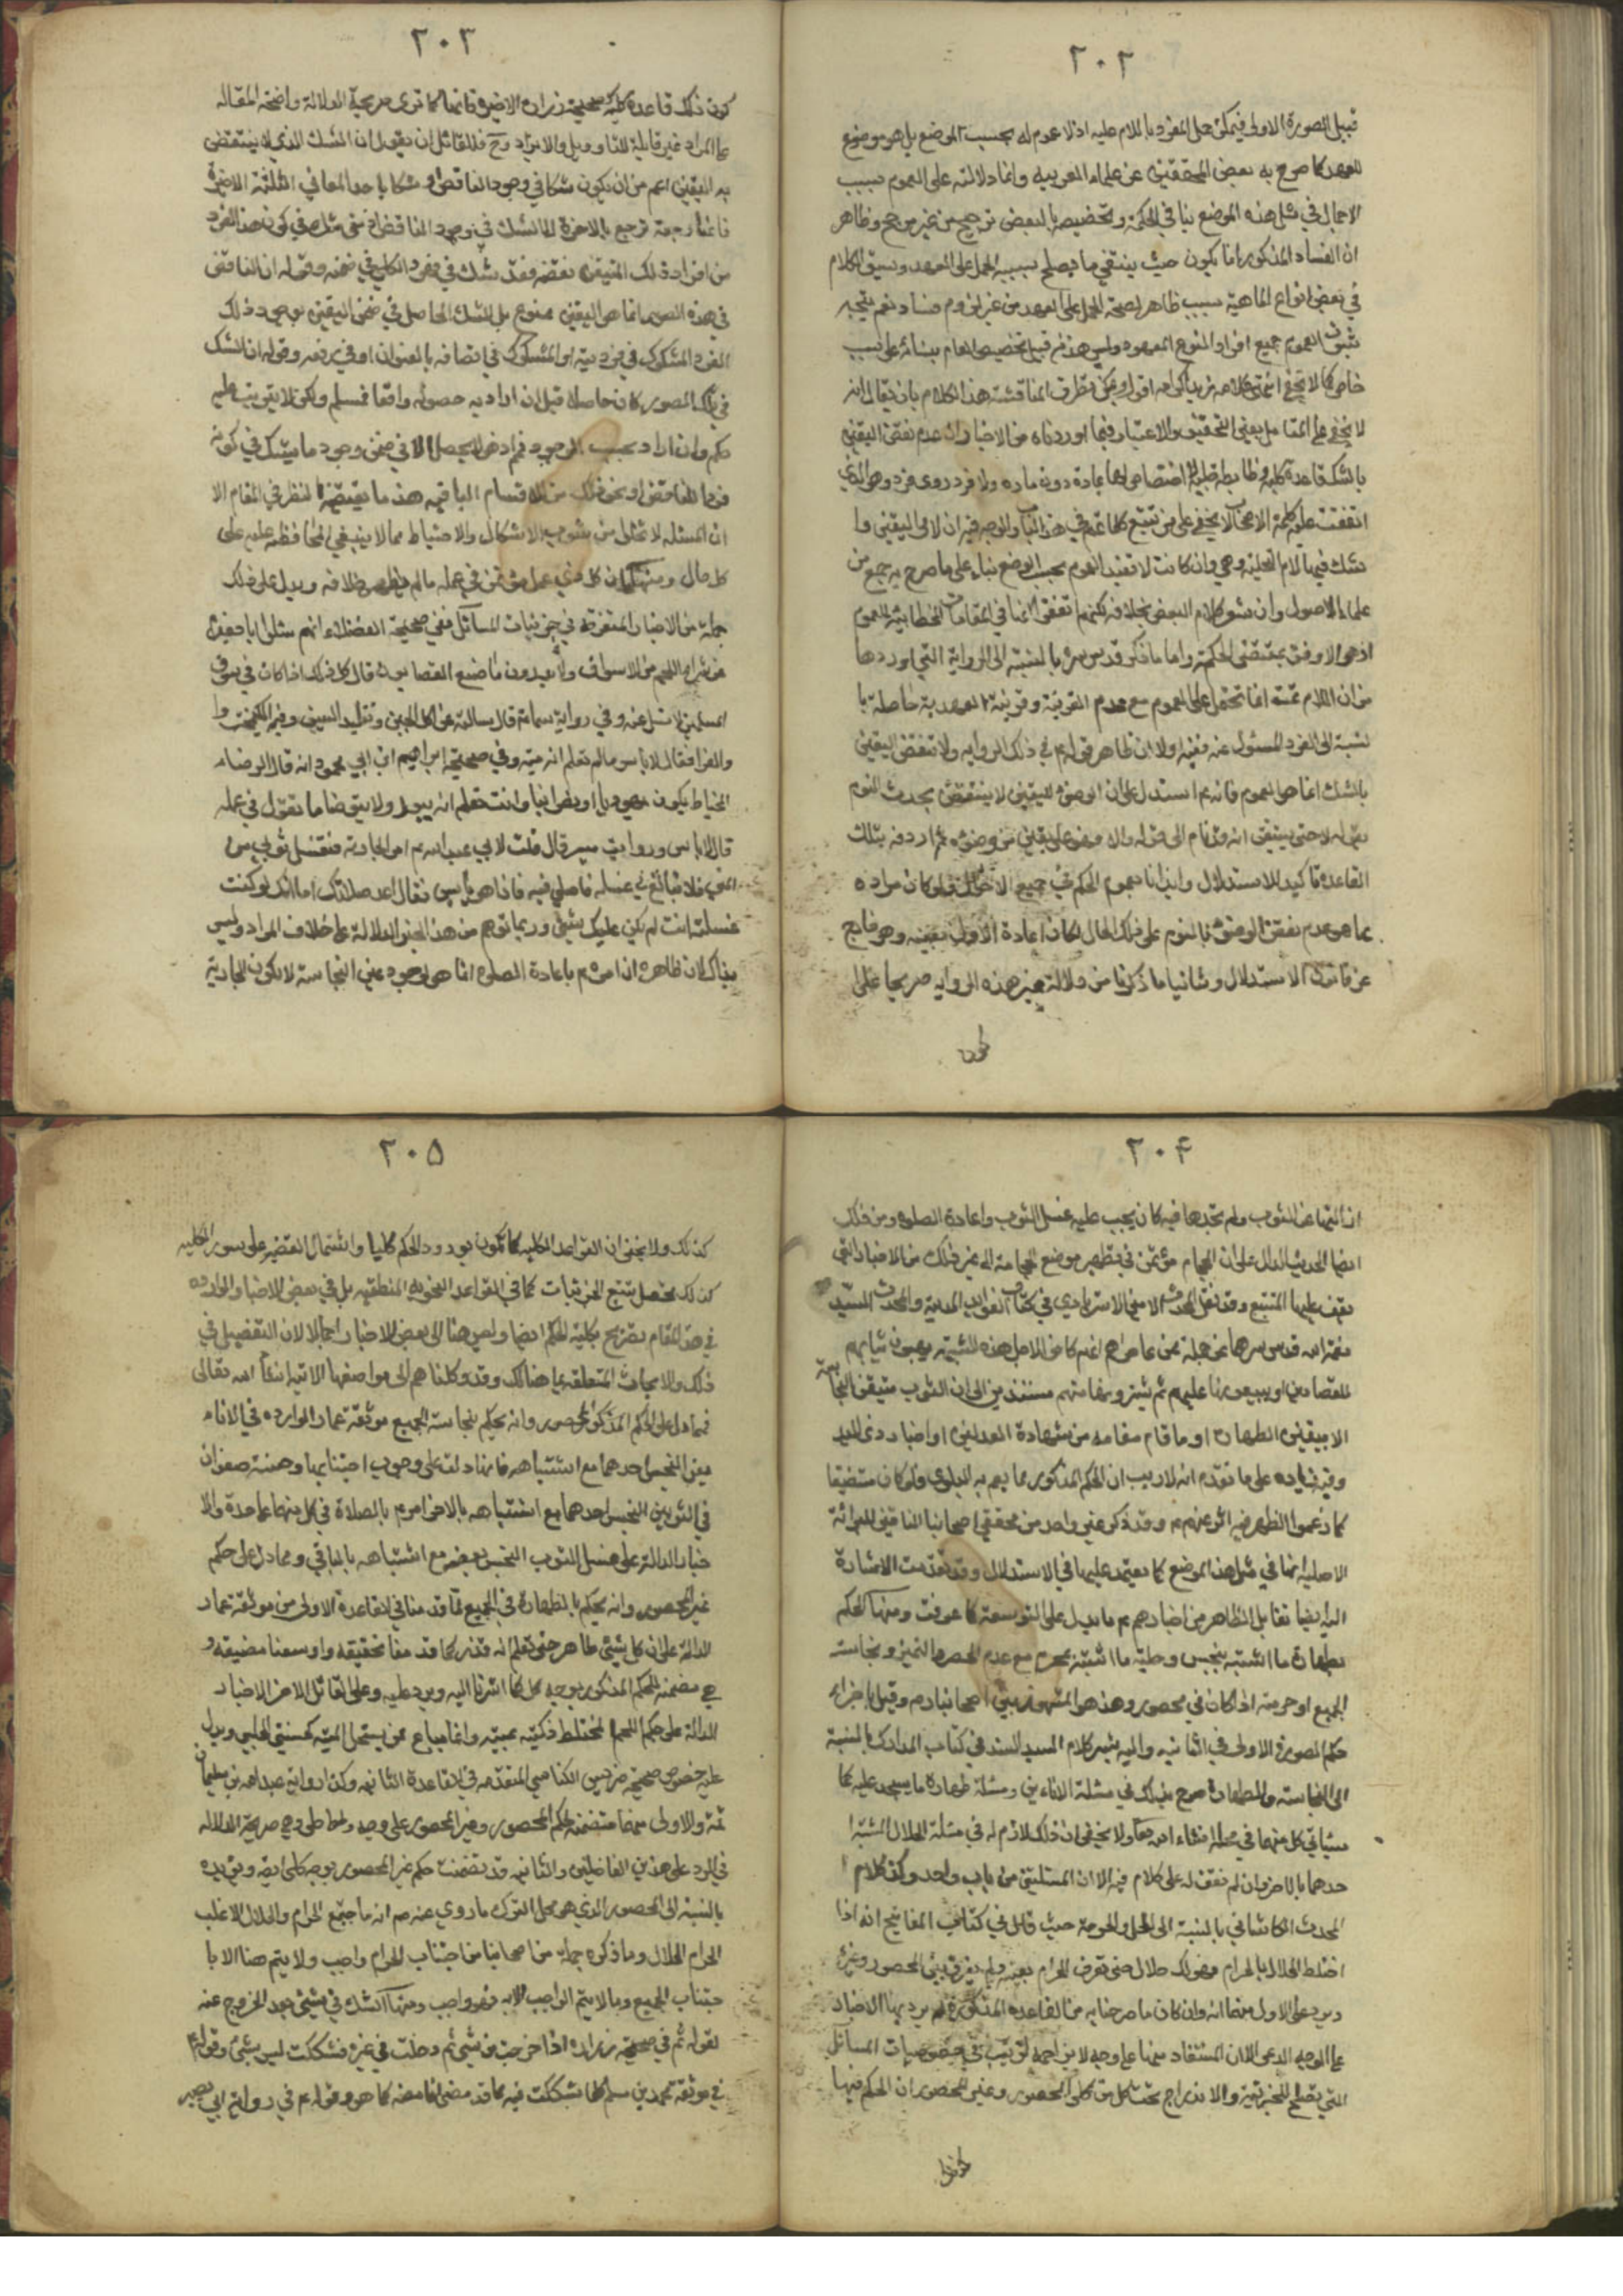 ٢٠٢
قبيل الصورة الاولى فيمكن حمل المفرد باللام عليه اذ لا عموم له بحسب الوضع بل هو موضوع
للعهد كما صرح به بعض المحققين من علماء العربيه وانما دلالته على العموم بسبب
الاجمال في مثل هذه الموضع ينافي الحكمة وتخصيصه بالبعض ترجيح من غير مرجح وظاهر
ان الفساد المذكور انما يكون حيث ينتفي ما يصلح بسببه الحمل على العهد وسبق الكلام
في بعض انواع الماهية سبب ظاهر لصحة الحمل على العهد من غير لزوم فساد نعم يتجه
ثبوت العموم جميع افراد النوع المعهود وليس هذا من قبيل تخصيص العام ببنائه على سبب
خاص كما لا يخفى انتهى كلامه زيد اكرامه اقول ويمكن تطرق المناقشة هذا الكلام بان يقال انه
لا يخفى على المتامل بعين التحقيق والاعتبار فيما اوردناه من الاخبار ان عدم نقض اليقين
بالشك قاعدة كلية وضابطة جلية لا اختصاص لها بمادة دون ماده ولا فرد دون فرد وهو الذي
اتفقت عليه كلمة الاصحاب كما لا يخفى على من تتبع كلامهم في هذا الباب والوجه فيه ان لام اليقين وا
شك فيها لام التحلية وهي وان كانت لا تفيد العموم بحسب الوضع بناء على ما صرح به جمع من
علماء الاصول وان شهر كلام البعض بخلافه لكنهم اتفقوا انها في المقامات الخطابية للعموم
اذ هو الاوفق بمقتضى الحكمة واما ما ذكره قدس سره بالنسبة الى الرواية التي اوردها
من ان اللام ثمة انما تحمل على العموم مع عدم القرينة وقرينة العهدية حاصلة با
لنسبة الى الفرد المسئول عنه ففيه اولا ان ظاهر قوله ع في ذلك الروايه ولا تنقض اليقين
بالشك انما هو العموم فانه ع استدل على ان الوضوء اليقيني لا ينقضه بحدث النوم
بقوله لا حتى يستيقن انه قد نام الى قوله والا فهو على يقين من وضوئه ثم اردفه بتلك
القاعدة تاكيدا للاستدلال وايذانا بعموم الحكم في جميع الاحوال فلو كان مراده
بما هو عدم نقض الوضوء بالنوم على ذلك الحال لكان اعادة الاولى بعينه وهو خارج
عن قانون الاستدلال وثانيا ما ذكرنا من دلالة غير هذه الروايه صريحا على
كون
٢٠٣
كون ذلك قاعدة كلية كصحيحة زرارة الاخيرة فانها كما ترى صريحة الدلالة واضحة المقاله
على المراد غير قابلية للتاويل والايراد وح فللقائل ان يقول ان الشك الذي لا ينتقض
به اليقين اعم من ان يكون شكا في وجود الناقض او شكا باحد المعاني الثلثة الاخيرة
فانها راجعة ترجع بالاخرة الى الشك في وجود الناقض اذ متى شك في كون هذا الفرد
من افراد ذلك المتيقن نقضه فقد شك في وجود الكلي في ضمنه وقوله ان الناقض
في هذه الصور انما هو اليقين ممنوع بل الشك الحاصل في ضمن اليقين بوجود ذلك
الفرد المشكوك في فرديته او المشكوك في اتصافه بالعنوان او في رفعه وقوله ان الشك
في تلك الصور كان حاصلا قبل ان اراد به حصوله واقعا فمسلم ولكن لا يترتب عليه
حكم وان اراد بحسب الوجود فهو اذ هو لا يحصل الا في ضمن وجود ما يشك في كونه
فردا للناقض او نحو ذلك من الاقسام الباقيه هذا ما يقتضيه النظر في المقام الا
ان المسئله لا تخلو من شوب الاشكال والاحتياط مما لا ينبغي المحافظة عليه على
كل حال ومنها ان كل ذي عمل مؤتمن في عمله ما لم يظهر خلافه ويدل على ذلك
جملة من الاخبار المتفرقة في جزئيات المسائل ففي صحيحة الفضلاء انهم سئلوا ابا جعفر
عن شراء اللحم من الاسواق ولا يدرون ما صنع القصابون قال كل ذلك اذا كان في سوق
المسلمين لا تسل عنه وفي رواية سماعة قال سالته عن اكل الجبن وتقليد السيف وفيه الكيمخت وا
والفرا فقال لا باس ما لم تعلم انه ميتة وفي صحيحة ابراهيم ابن ابي محمود انه قال للرضاء
الخياط يكون يهوديا او نصرانيا وانت تعلم انه يبول ولا يتوضا ما تقول في عمله
قال لا باس ورواية ميسر قال قلت لابي عبد الله ع امر الجارية فتغسل ثوبي من
المني فلا تبالغ في غسله فاصلي فيه فاذا هو يابس فقال اعد صلاتك اما انك لو كنت
غسلت انت لم يكن عليك شيئ وربما توهم من هذا الخبر الدلالة على خلاف المراد وليس
بذاك لان ظاهره ان امره ع باعادة الصلوة انما هو لوجود عين النجاسة لا يكون الجارية
٢٠۴
ازالتها عن الثوب ولم تجدها فيه كان يجب عليه غسل الثوب واعادة الصلوة ومن ذلك
ايضا الحديث الدال على ان الحجام مؤتمن في تطهير موضع الحجامة الى غير ذلك من الاخبار التي
يقف عليها المتتبع وقد نقل المحدث الامين الاسترابادي في كتاب الفوائد المدنية والمحدث السيد
نعمة الله قدس سرهما عن جملة ممن عاصراهم انهم كانوا لاجل هذه الشبهة يهبون ثيابهم
للقصارين او يبيعونها عليهم ثم يشترونها منهم مستندين الى ان الثوب متيقن النجاسة
الا بيقين الطهارة او ما قام مقامه من شهادة العدلين او اخبار ذي اليد
وفيه زياده على ما تقدم انه لا ريب ان الحكم المذكور مما يعم به البلوى ولو كان مضيقا
كما زعموا لظهر فيه اثر عنهم ع وقد ذكر غير واحد من محققي اصحابنا النافين للبرائة
الاصلية انها في مثل هذا الموضع كما يعتمد عليها في الاستدلال وقد تقدمت الاشارة
اليه ايضا تقابل الظاهر من اخبارهم ع ما يدل على التوسعة كما عرفت ومنها الحكم
بطهارة ما اشتبه بنجس وحلية ما اشتبه بمحرم مع عدم الحصر والتميز ونجاسة
الجميع او حرمته اذا كان في محصور وهذا هو المشهور بين اصحابنا رم وقيل باجراء
حكم الصورة الاولى في الثانيه واليه يشير كلام السيد السند في كتاب المدارك بالنسبة
الى النجاسة والطهارة صرح بذلك في مسئلة الانائين ومسئلة طهارة ما يسجد عليه كما
سيأتي كل منهما في محله انشاء الله تعالى ولا يخفى ان ذلك لازم له في مسئلة الحلال المشتبه ا
حدهما بالاخر وان لم نقف له على كلام فيه الا ان المسئلتين من باب واحد وكذا كلام ا
لمحدث الكاشاني بالنسبة الى الحل والحرمة حيث قال في كتاب المفاتيح انه اذا
اختلط الحلال بالحرام فهو لك حلال حتى تعرف الحرام بعينه ولم يفرق بين المحصور وغيره
ويرد على الاول منهما انه وان كان ما صرحنا به من القاعدة المذكورة لم يرد بها الاخبار
على الوجه المدعى الا ان المستفاد منها على وجه لا يزاحمه الريب في خصوصيات المسائل
التي تصلح للجزئية والاندراج تحت كل من كلي المحصور وغير المحصور ان الحكم فيها
كذلك
٢٠۵
كذلك ولا يخفى ان القواعد الكليه كما تكون بورود الحكم كليا واشتمال القضيه على سور الكليه
كذلك تحصل بتتبع الجزئيات كما في القواعد النحويه المنطقيه بل في بعض الاخبار الوارده
في هذا المقام تصريح بكلية الحكم ايضا وليس هنا الى بعض الاخبار اجمالا لان التفصيل في
ذلك والابحاث المتعلقه بما هنالك وقد وكلناهم الى مواضعها الاتيه انشأ الله تعالى
فمما دل على الحكم المذكور المحصور وانه يحكم بنجاسة الجميع موثقة عمار الوارده في الاناء
ين النجس احدهما مع اشتباهه فانها دلت على وجوب اجتنابهما وحسنة صفوان
في الثوبين النجس احدهما مع اشتباهه بالاخر امره ع بالصلاة في كل منهما على حدة والا
خبار الدالة على غسل الثوب النجس بعضه مع اشتباهه بالباقي ومما دل على حكم
غير المحصور وانه يحكم بالطهارة في الجميع ما قدمنا في القاعدة الاولى من موثقة عمار
الدالة على ان كل شيئ طاهر حتى تعلم انه قذر كما قدمنا تحقيقه واوسعنا مضيقه و
هي متضمنة للحكم المذكور بوجه كلي كما اشرنا اليه ويرد عليه وعلى القائل الاخر الاخبار
الدالة على حكم اللحم المختلط ذكيه بميته وانما يباع ممن يستحل الميته كحسنتي الحلبي ويدل
عليه خصوص صحيحة ضريس الكناسي المتقدمه في القاعدة الثانيه وكذا رواية عبد الله بن سليمان
ثمة والاولى منهما متضمنة لحكم المحصور وغير المحصور على وجه وهي صريحة الدلاله
في الرد على هذين الفاضلين والثانيه قد تضمنت حكم غير المحصور بوجه كلي ايضه ويؤيده
بالنسبة الى المحصور الذي هو محل النزاع ما روي عنه ص انه ما اجتمع الحرام والحلال الا غلب
الحرام الحلال وما ذكره جملة من اصحابنا من اجتناب الحرام واجب ولا يتم هنا الا با
جتناب الجميع وما لا يتم الواجب الا به فهو واجب ومنها الشك في شيئ بعد الخروج عنه
لقوله ع في صحيحة زراره اذا خرجت من شيئ ثم دخلت في غيره فشككت ليس بشيئ وقوله ع
في موثقة محمد بن مسلم كلما شككت فيه مما قد مضى فامضه كما هو وقوله ع في رواية ابي بصير